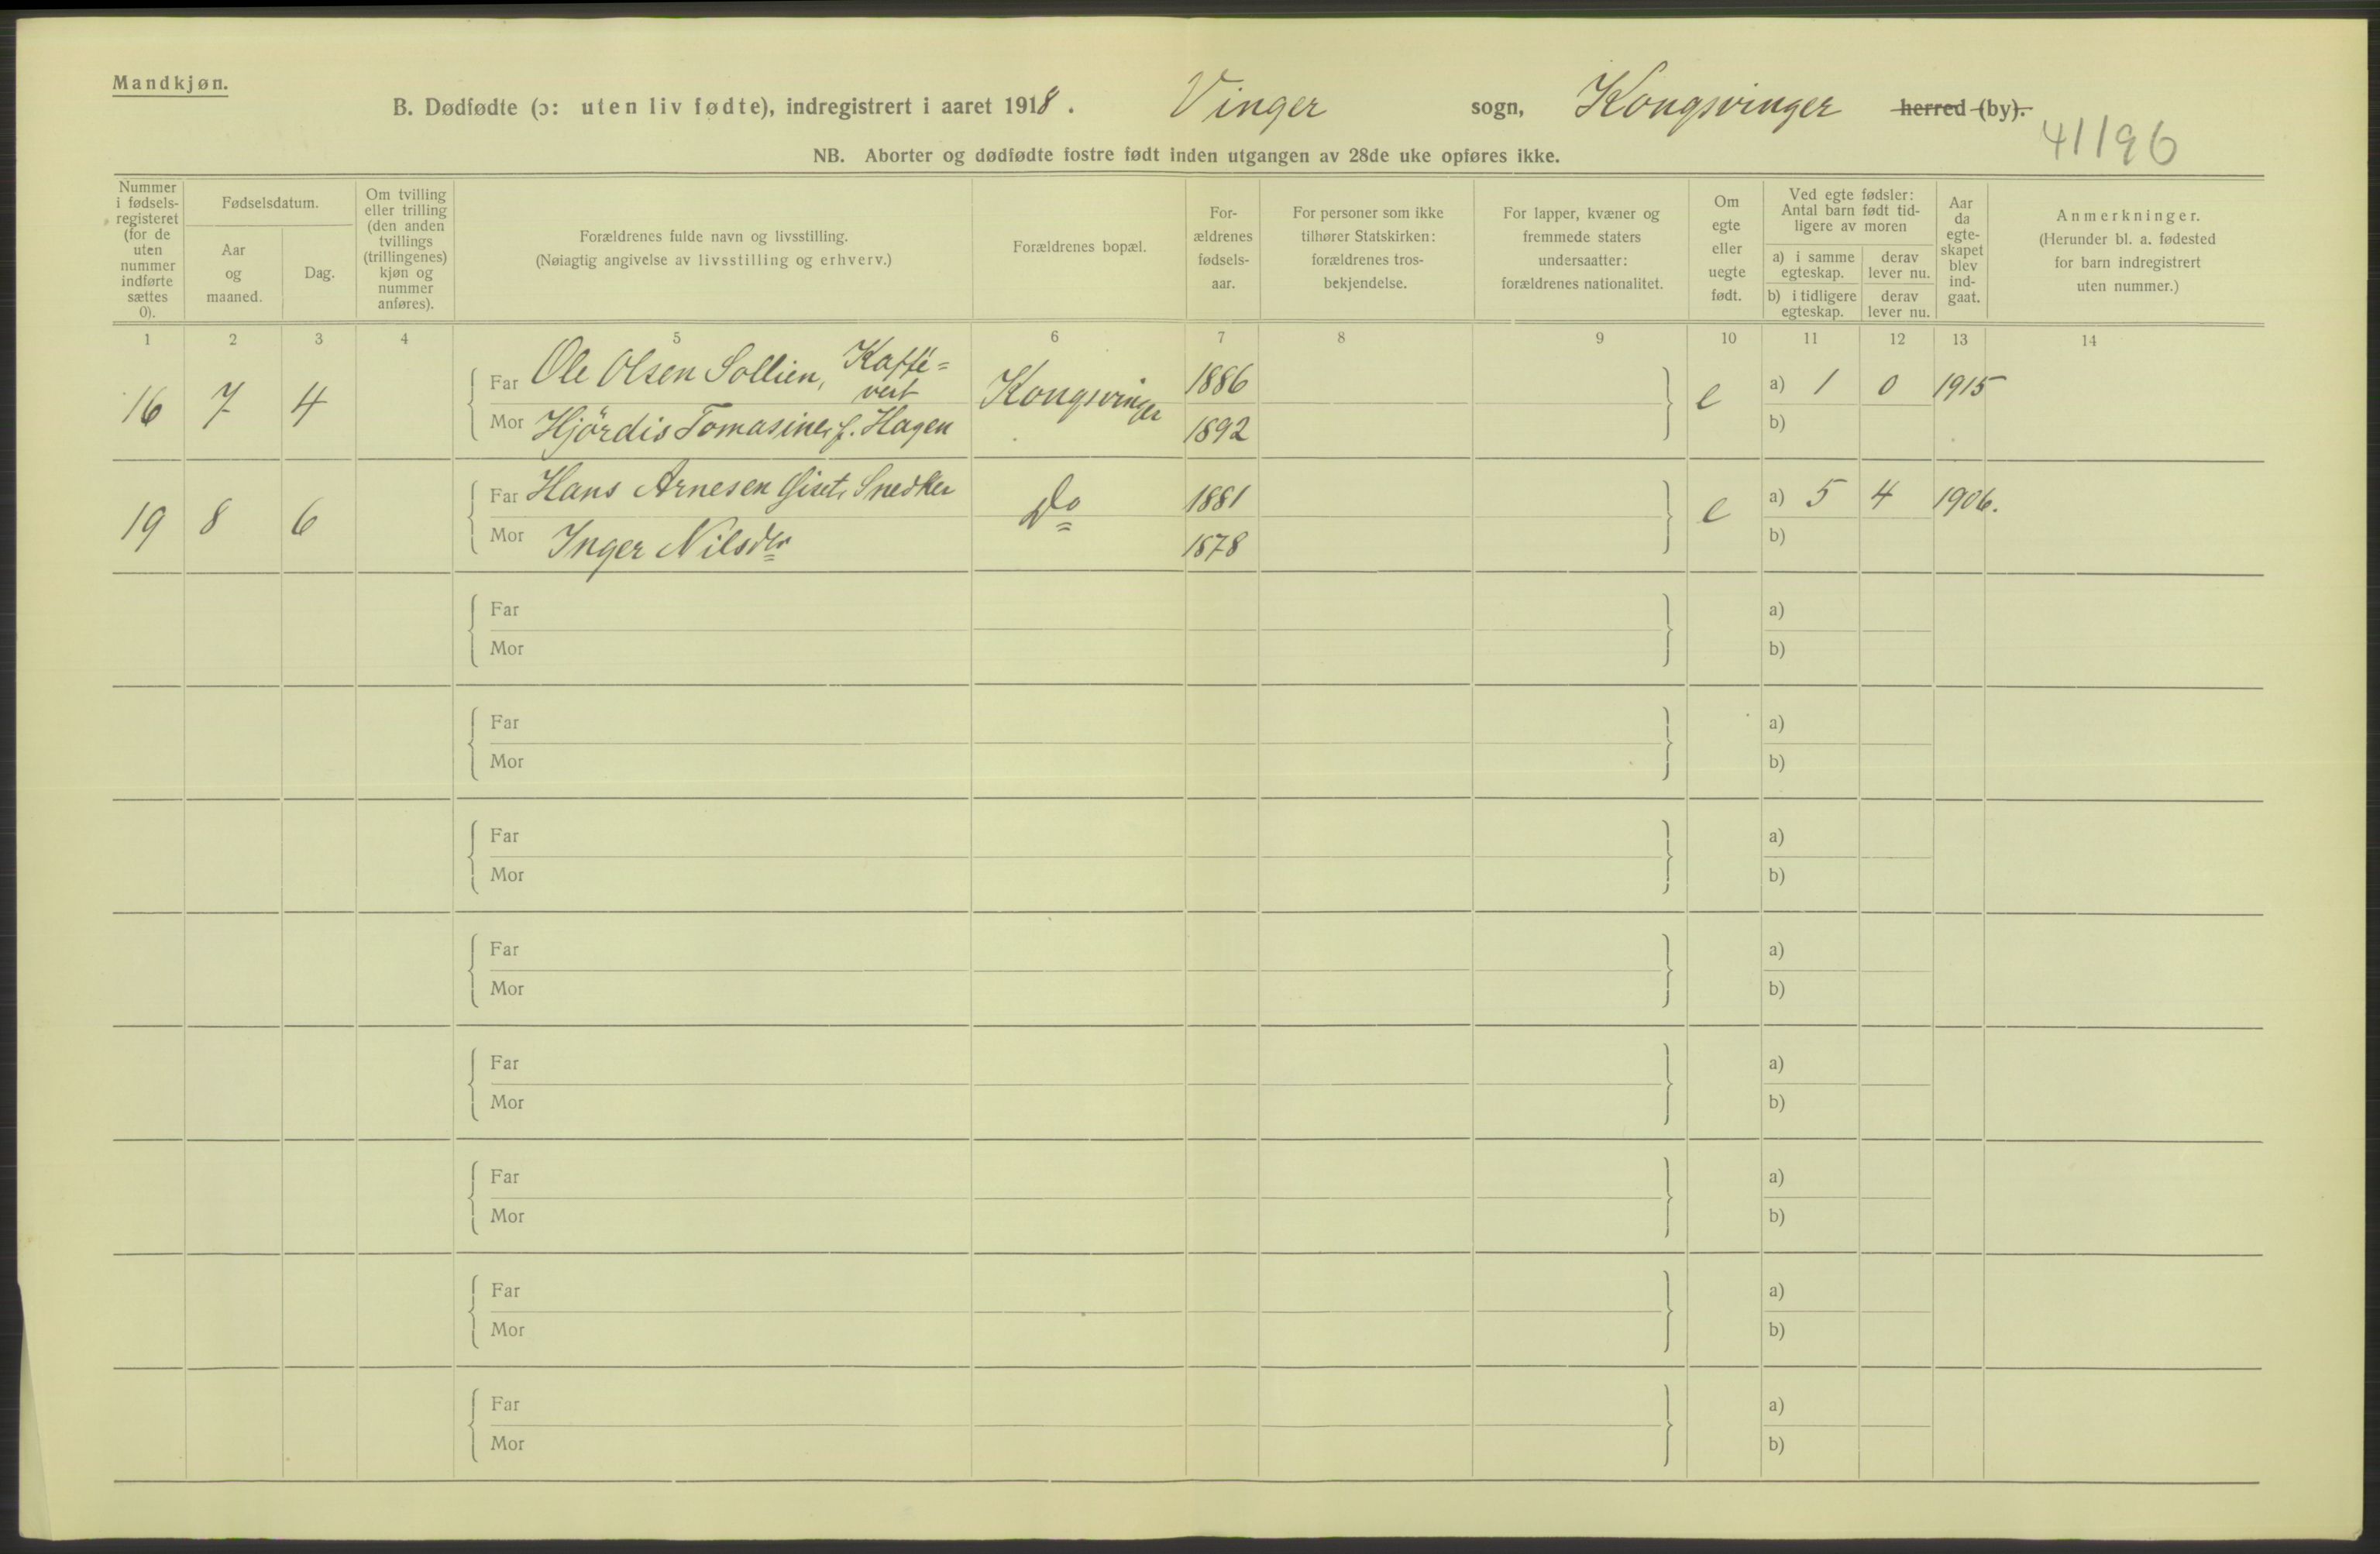 Mandkjøn.
B. Dødfødte (ɔ: uten liv fødte), indregistrert i aaret 1918. Vinger sogn, Kongsvinger herred (by).
41196
NB. Aborter og dødfødte fostre født inden utgangen av 28de uke opføres ikke.
Nummer i fødselsregisteret (for de uten nummer indførte sættes 0).
Fødselsdatum.
Aar og maaned.
Dag.
Om tvilling eller trilling (den anden tvillings (trillingenes) kjøn og nummer anføres).
Forældrenes fulde navn og livsstilling.
(Nøiagtig angivelse av livsstilling og erhverv.)
Forældrenes bopæl.
For-ældrenes fødsels-aar.
For personer som ikke tilhører Statskirken: forældrenes tros-bekjendelse.
For lapper, kvæner og fremmede staters undersaatter: forældrenes nationalitet.
Om egte eller uegte født.
Ved egte fødsler: Antal barn født tid-ligere av moren
a) i samme egteskap.
derav lever nu.
b) i tidligere egteskap.
derav lever nu.
Aar da egte-skapet blev ind-gaat.
Anmerkninger.
(Herunder bl. a. fødested for barn indregistrert uten nummer.)
1 2 3 4 5 6 7 8 9 10 11 12 13 14
16 7 4 Far Ole Olsen Sollien, Kaffe= vert Kongsvinger 1886 e a) 1 0 1915
Mor Hjördis Tomasine, f. Hagen 1892 b)
19 8 6 Far Hans Arnesen Snedker Do 1881 e a) 5 4 1906.
Mor Inger Nilsdr 1878 b)
Far a)
Mor b)
Far a)
Mor b)
Far a)
Mor b)
Far a)
Mor b)
Far a)
Mor b)
Far a)
Mor b)
Far a)
Mor b)
Far a)
Mor b)